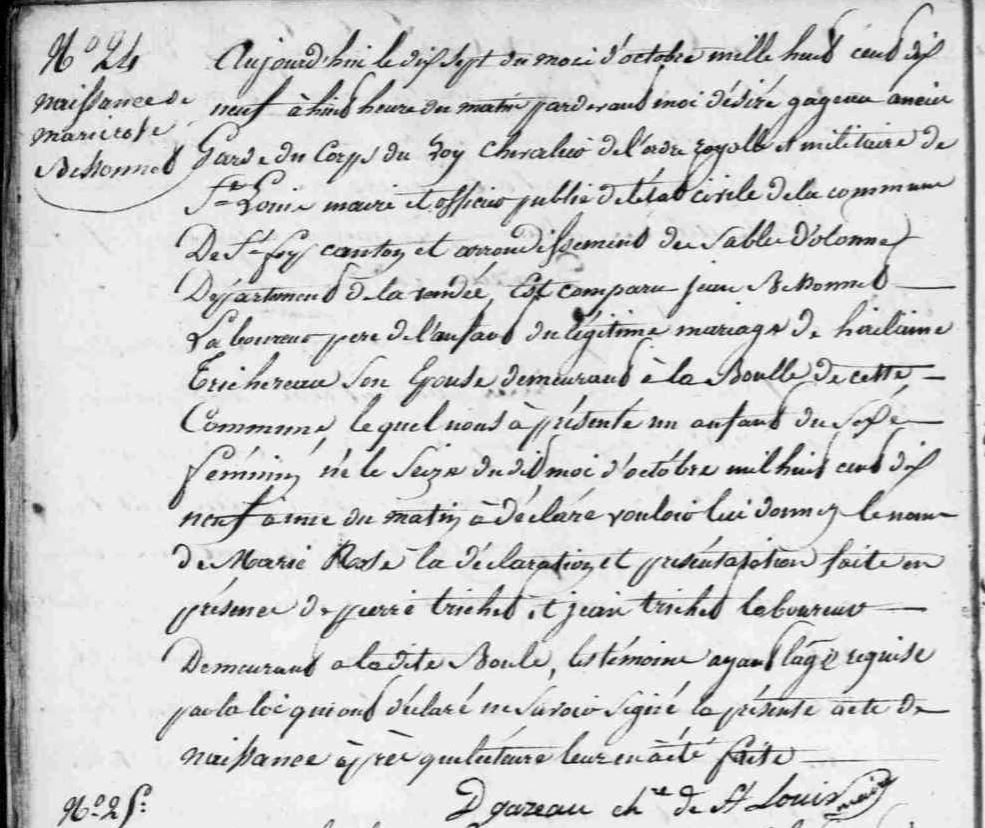 N° 24
naissance de
marie rose
Bessonnet
Aujourd'hui le dix sept du moi d'octobre mille huit cent dix
neuf à huit heure du matin pardevant moi désiré gazeau ancien
Garde du Corps du Roy Chevalier de l'ordre royalle et militaire de
St Louis maire et officier public de létat civile de la commune
De Ste foy canton et arrondissement de Sable D'olonne
Département de la vendée, Est comparu jean Bessonnet
Laboureur pere de l'anfant du légitime mariage de
Trichereau Son Epouse demeurant à la Boulle de cette
Commune, lequel nous à présenté un anfant du Sexe
féminin né le Seize dudit moi d'octobre mil huit cent dix
neuf a une du matin à déclaré vouloir lui donner le nom
de Marie Rose la déclaration et présentation faite en
présence de pierre trichet et jean trichet laboureur
Demeurant a la dite Boule, les témoins ayant l'age requise
par la loi qui ont déclaré ne savoir signé la présente acte de
naissance après que lecture leur en à été faite
D gazeau che de St Louis maire
N° 25: